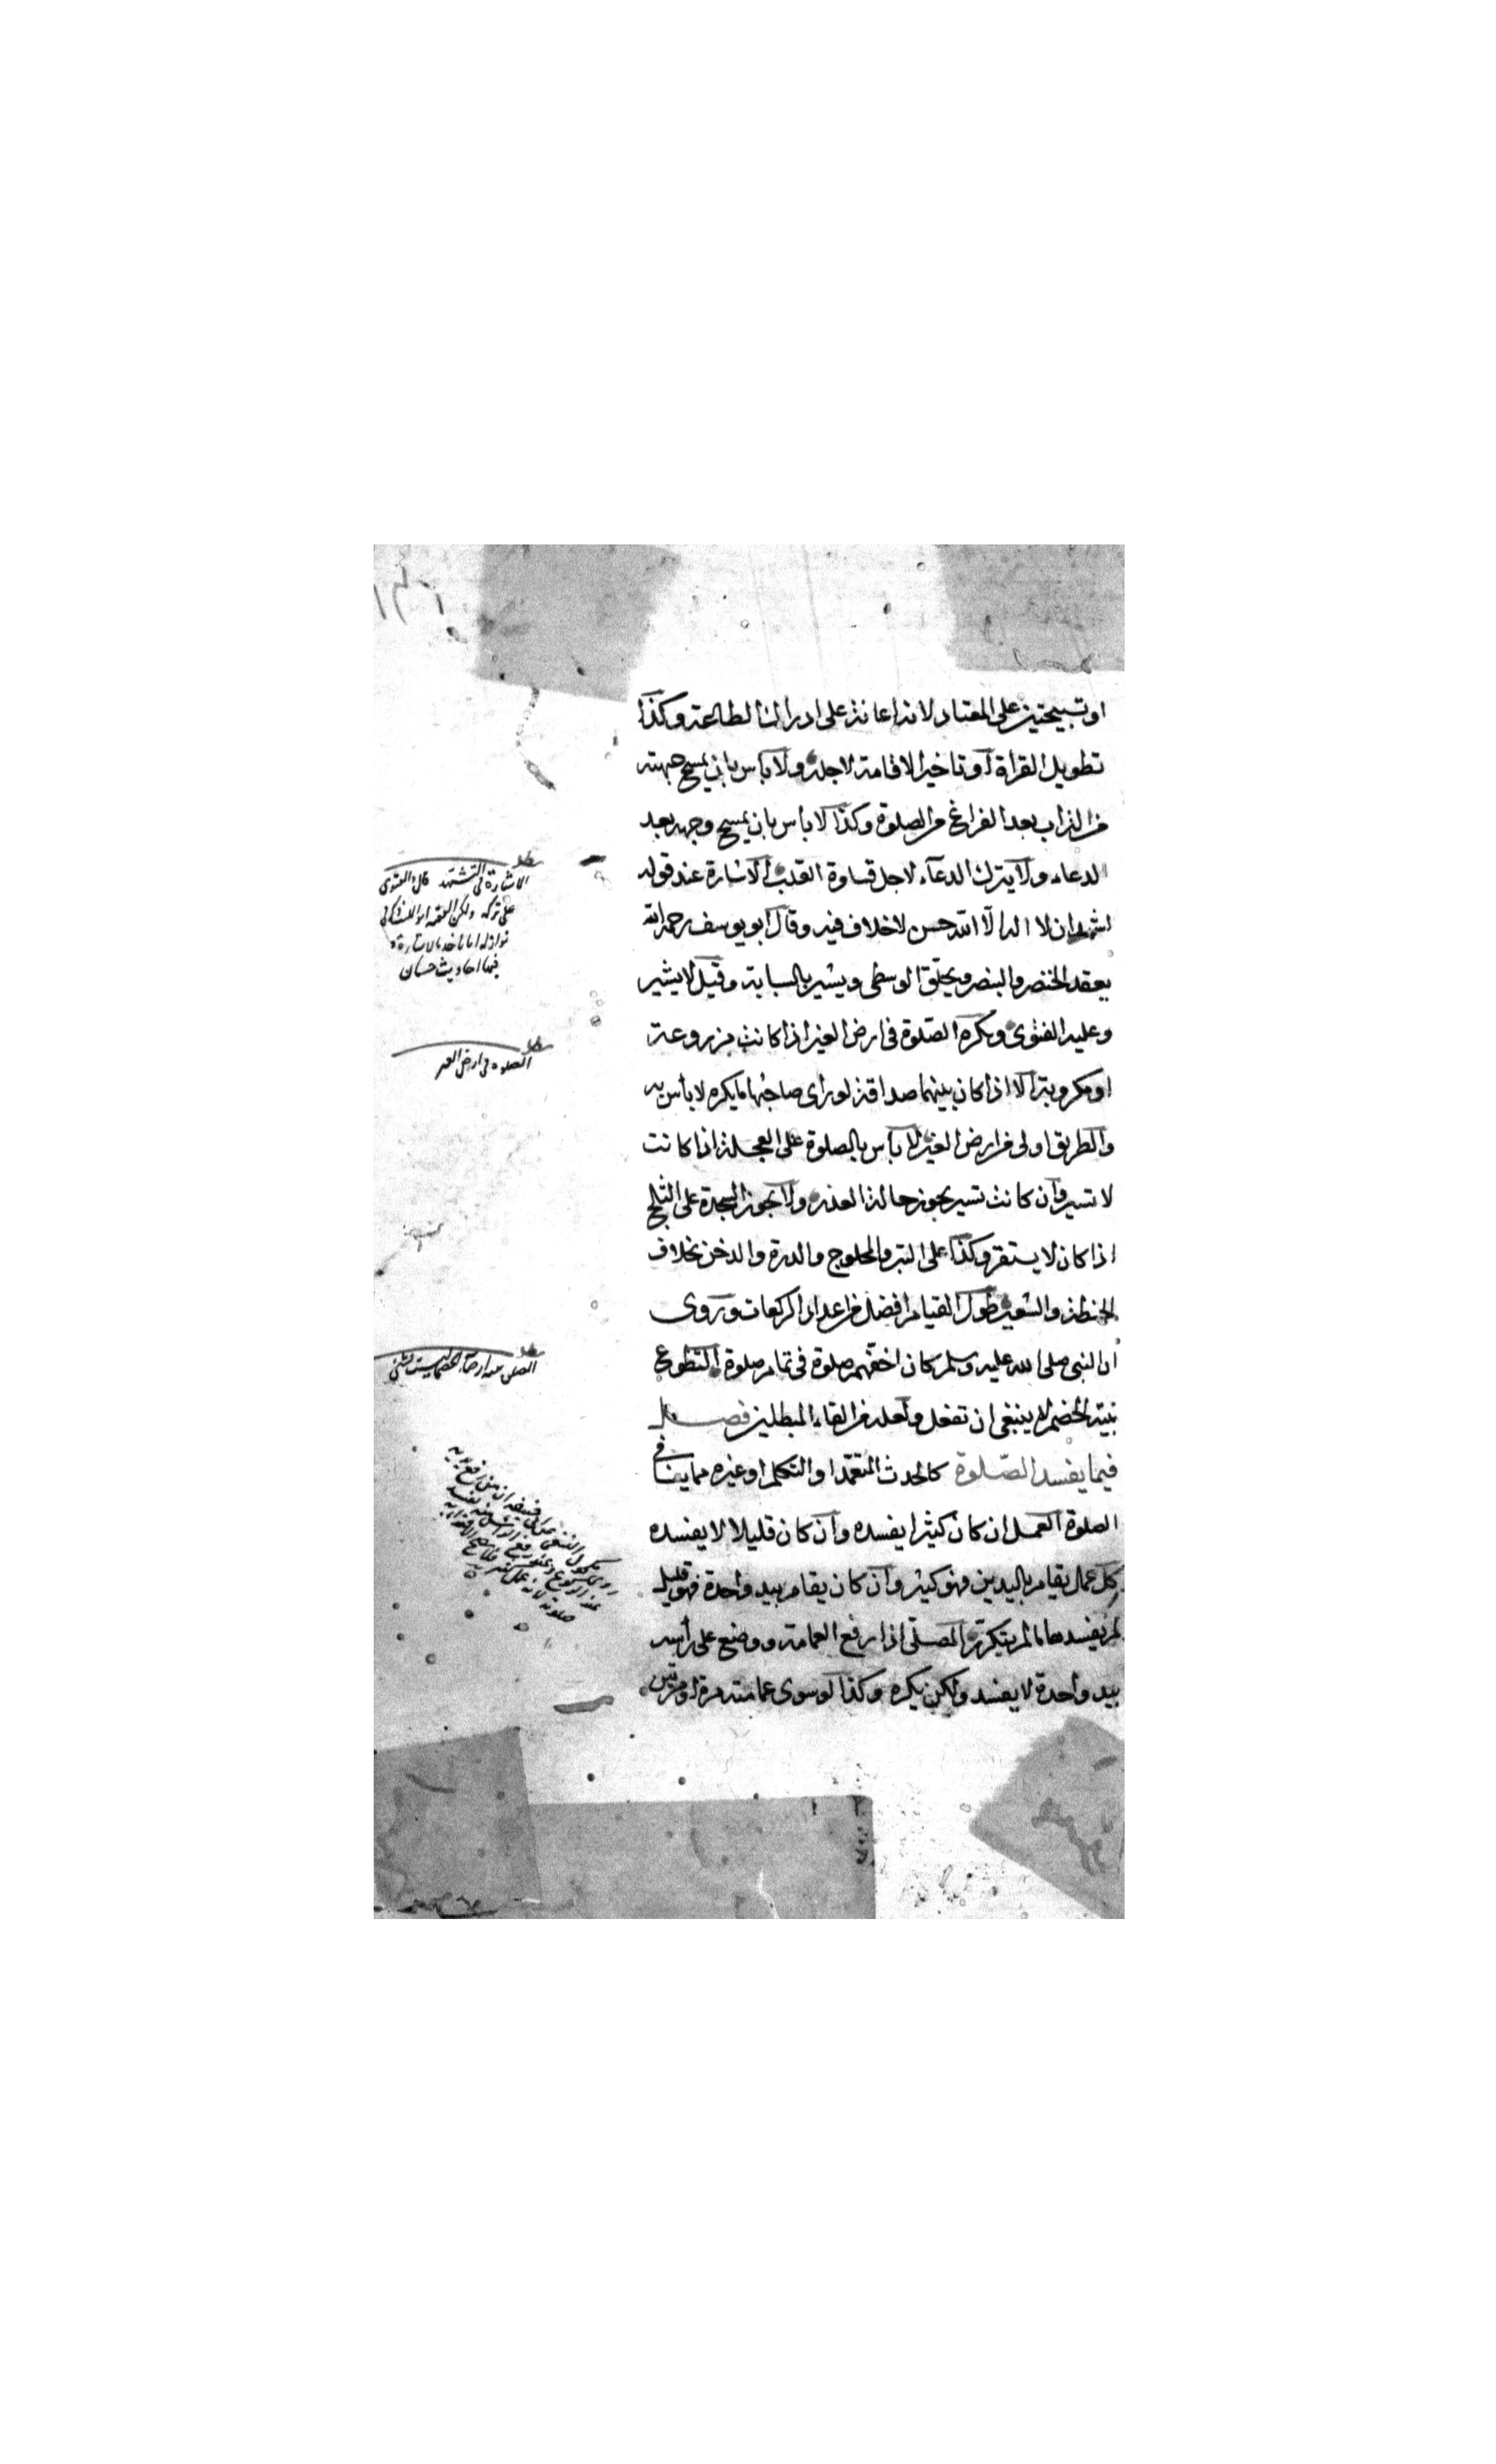 او تسبيحتين على المعتاد لانه اعانة على ادراك الطاعة وكذا
تطويل القراة او تاخير الاقامة لاجله ولا باس بان يمسح جبهته
من التراب بعد الفراغ من الصلوة وكذا لا باس بان يمسح وجهه بعد
الدعاء ولا يترك الدعاء لاجل قساوة القلب الاشارة عند قوله
اشهد ان لا اله الا الله حسن لا خلاف فيه وقال ابو يوسف رحمه الله
يعقد الخنصر والبنصر ويحلق الوسطى ويشير بالسبابة وقيل لا يشير
وعليه الفتوى ويكره الصلوة فى ارض الغير اذا كانت مزروعة
او مكروبة الا اذا كان بينهما صداقة لو راى صاحبها ما يكره لا بأس به
والطريق اولى من ارض الغير لا باس بالصلوة على العجلة اذا كانت
لا تسير وان كانت تسير يجوز حالة العذر ولا يجوز السجدة على الثلج
اذا كان لا يستقر وكذا على التبر والمحلوج والذرة والدخن بخلاف
الحنطة والشعير طول القيام افضل من اعداد الركعات وروى
ان النبى صلى الله عليه وسلم كان اخفهم صلوة فى تمام صلوة التطوع
بنية الخصم لا ينبغى ان تفعل ولعله من القاء المبطلين فصل
فيما يفسد الصلوة كالحدث المتعمد او التكلم او غيره مما ينافى
الصلوة العمل ان كان كثيرا يفسده وان كان قليلا لا يفسده
وكل عمل يقام باليدين فهو كثير وان كان يقام بيد واحدة فهو قليل
لم يفسدها ما لم يتكرر المصلى اذا رفع العمامة ووضع على رأسه
بيد واحدة لا يفسد ولكن يكره وكذا لو سوى عمامته مرة او مرتين
الاشارة فى التشهد قال الفتوى
على تركه ولكن الفقيه ابو الليث ذكر فى
نوازله انا ناخذ بالاشارة و
فيها احاديث حسان
الصلوة فى ارض الغير
روى مكحول النسفى عن ابى حنيفة ان من رفع يديه
عند الركوع وعند رفع الراس منه تفسد
صلوته لانه عمل كثير